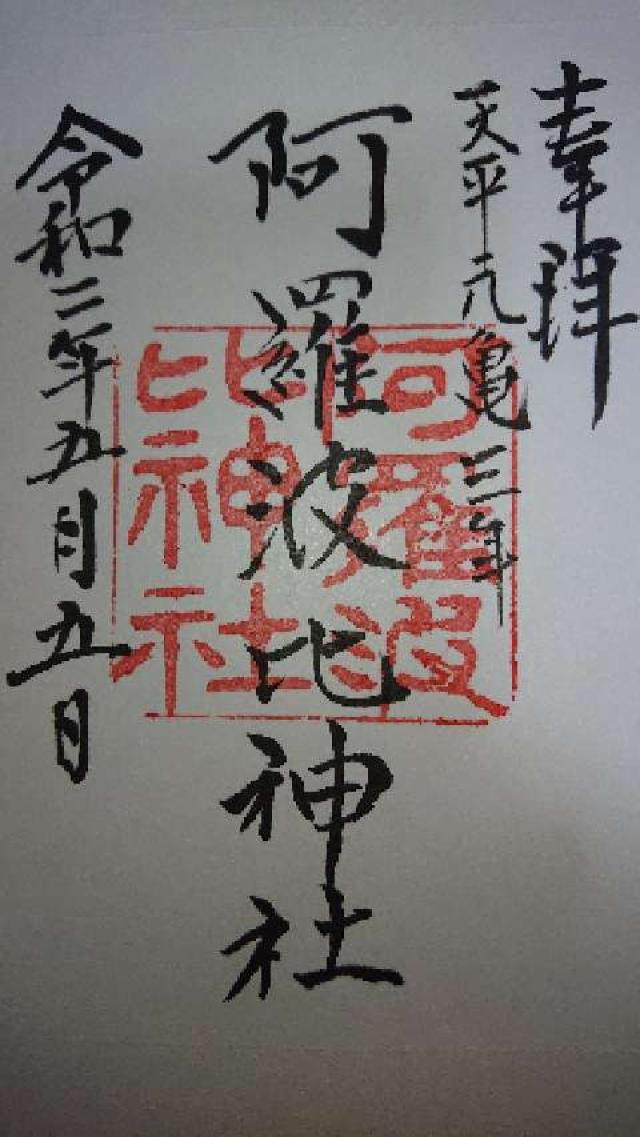 奉拝
天平元亀三年
阿羅波比神社
令和二年五月五日
阿羅波
比神社